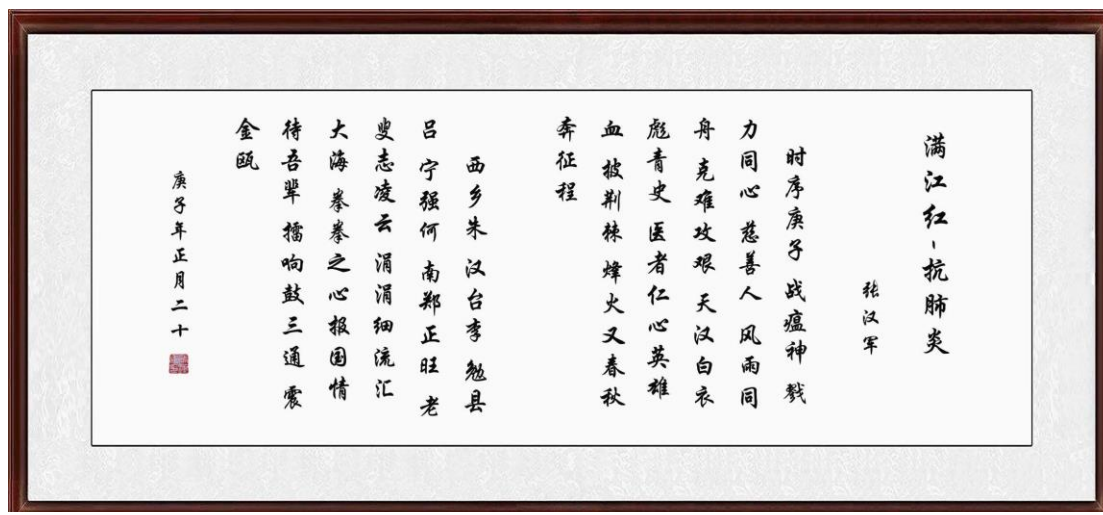 满江红-抗肺炎
张汉军
时序庚子 战瘟神 戮
力同心 慈善人 风雨同
舟 克难攻艰 天汉白衣
彪青史 医者仁心英雄
血 披荆棘 烽火又春秋
奔征程
西乡朱 汉台李 勉县
吕 宁强何 南郑正旺 老
叟志凌云 涓涓细流汇
大海 拳拳之心报国情
待吾辈 擂响鼓三通 震
金瓯
庚子年正月二十